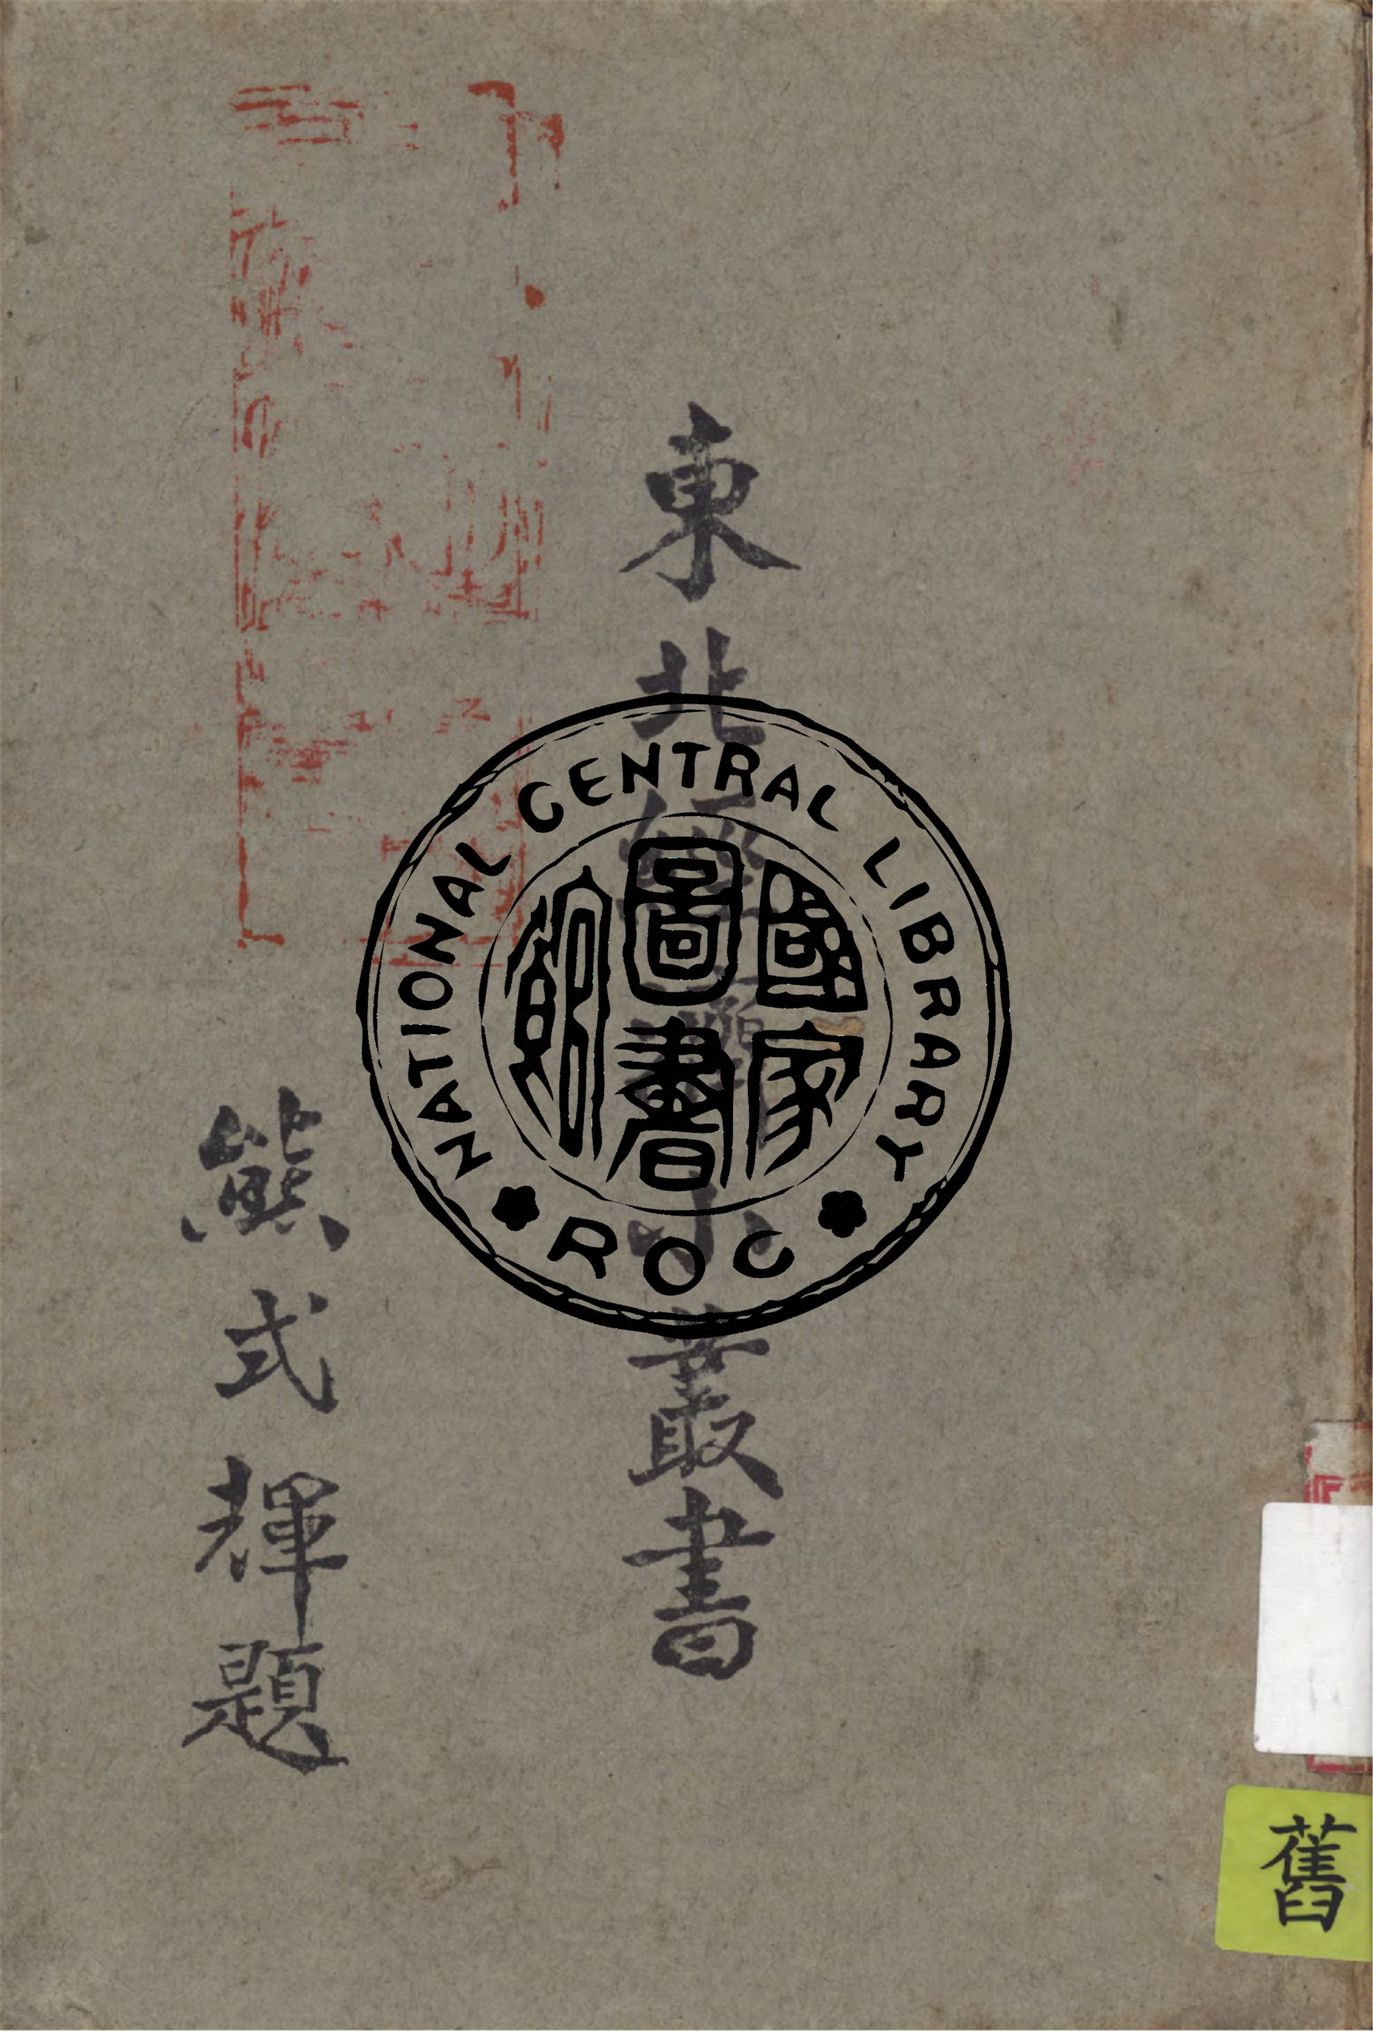 東北經濟小叢書
熊式輝題
NATIONAL CENTRAL LIBRARY
ROC
國家
圖書
館
舊